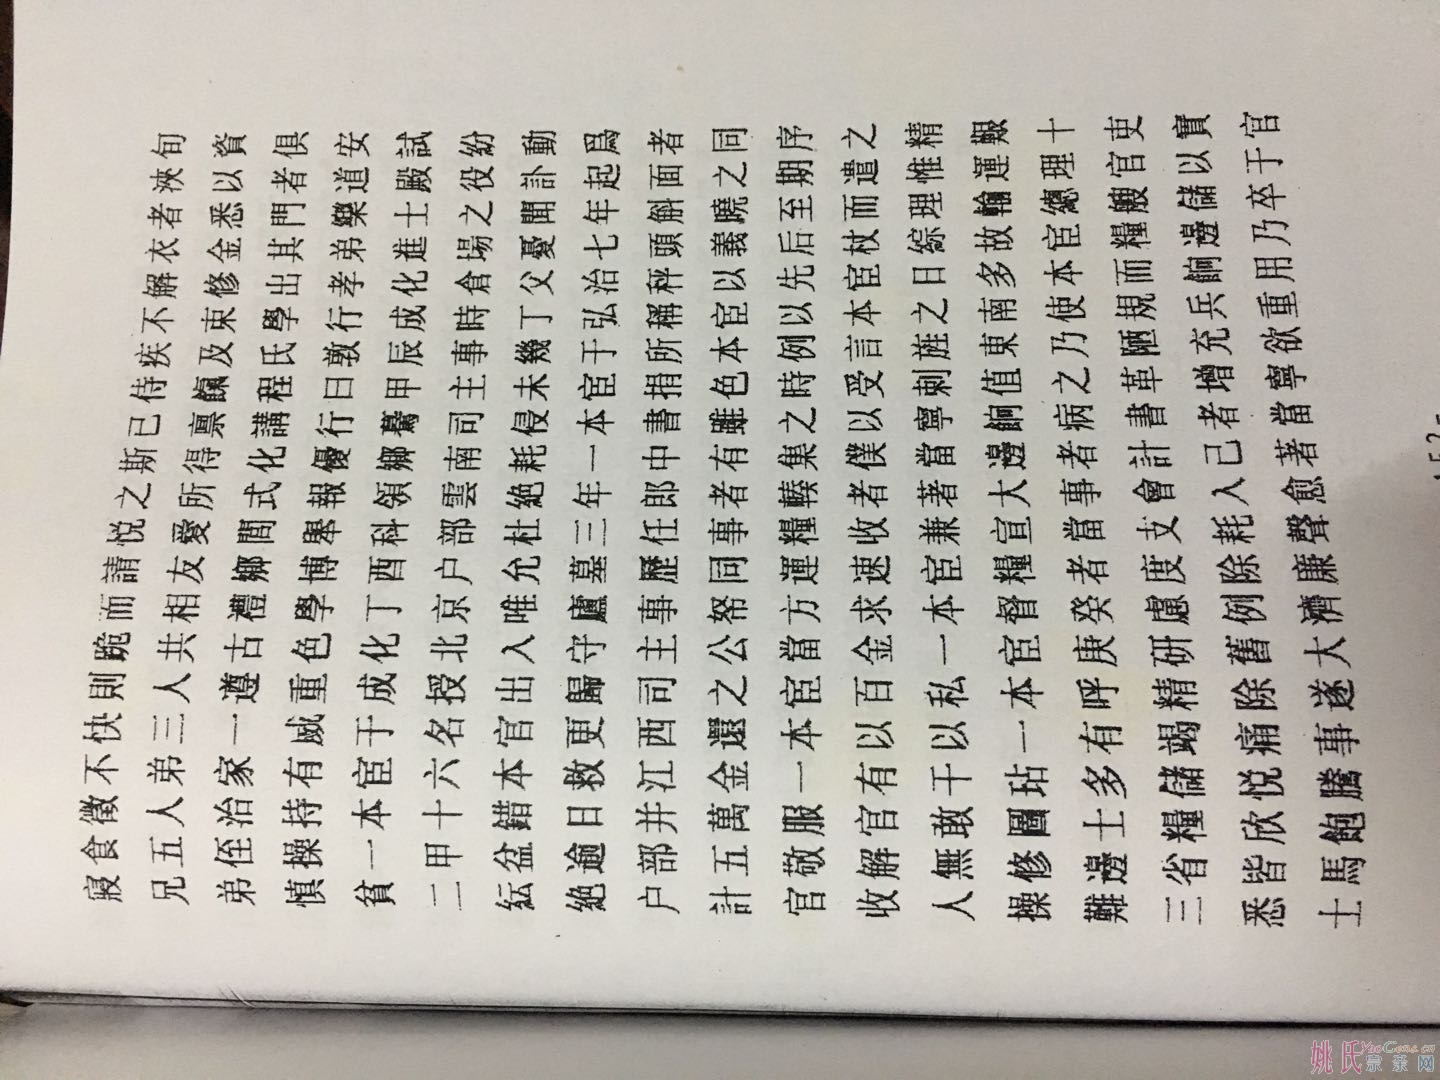 寢食徵不快則跪而請悅之斯已侍疾不解衣者浹旬
兄五人弟三人共相友愛所得禀餼及束修金悉以資
弟侄治家一遵古禮鄉閭式化講程氏學出其門者俱
慎操持有威重色學博舉報優行曰敦行孝弟樂道安
貧一本宦于成化丁酉科領鄉薦甲辰成化進士殿試
二甲十六名授北京户部雲南司主事時倉場之役紛
紜盆錯本官出入唯允杜絶耗侵未幾丁父憂聞訃動
絶逾日救更歸守廬墓三年一本宦于弘治七年起爲
户部并江西司主事歷任郎中書捐所稱秤頭斛面者
計五萬金還之公帑同事者有雖色本宦以義曉之同
官敬服一本宦當方運糧輳集之時例以先后至期序
收解官有以百金求速收者僕以受言本宦杖而遣之
人無敢干以私一本宦兼著當寧剌旌之日綜理惟精
操修圖玷一本宦督糧宣大邊餉值東南多故輸運艱
難邊士多有呼庚癸者當事者病之乃使本宦總理十
三省糧儲竭精研慮度支會計書革陋規而糧艘官吏
悉皆欣悅痛除舊例除耗入己者增充兵餉邊儲以實
士馬飽騰事遂大濟廉聲愈著當寧欲重用乃卒于官
姚氏宗亲网
YaoGens.cn